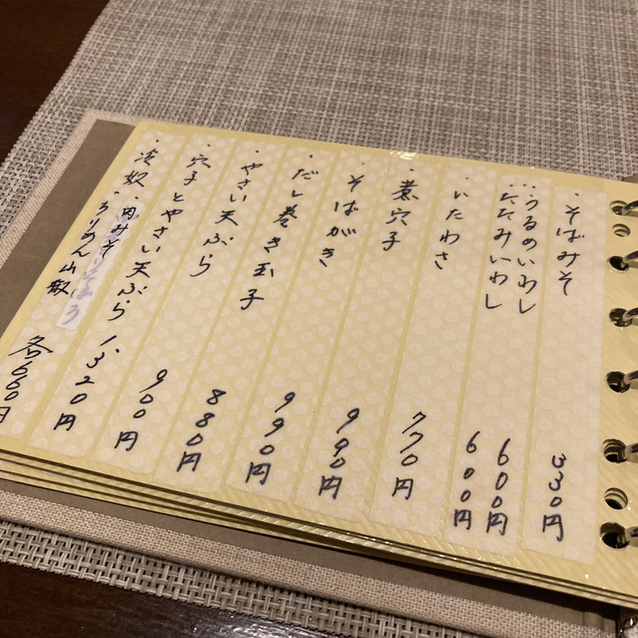 ・そばみそ 330円
・うるめいわし 600円
・たたみいわし 600円
・いたわさ 770円
・煮穴子 990円
・そばがき 990円
・だし巻き玉子 880円
・やさい天ぷら 900円
・穴子とやさい天ぷら 1,320円
・冷奴・肉みそ
・ちりめん山椒 各660円